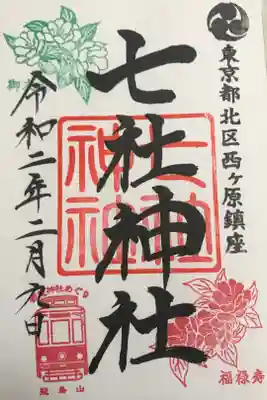 東京都北区西ヶ原鎮座
七社神社
令和二年二月九日
七社
神社
御
神社めぐり
飛鳥山
福禄寿